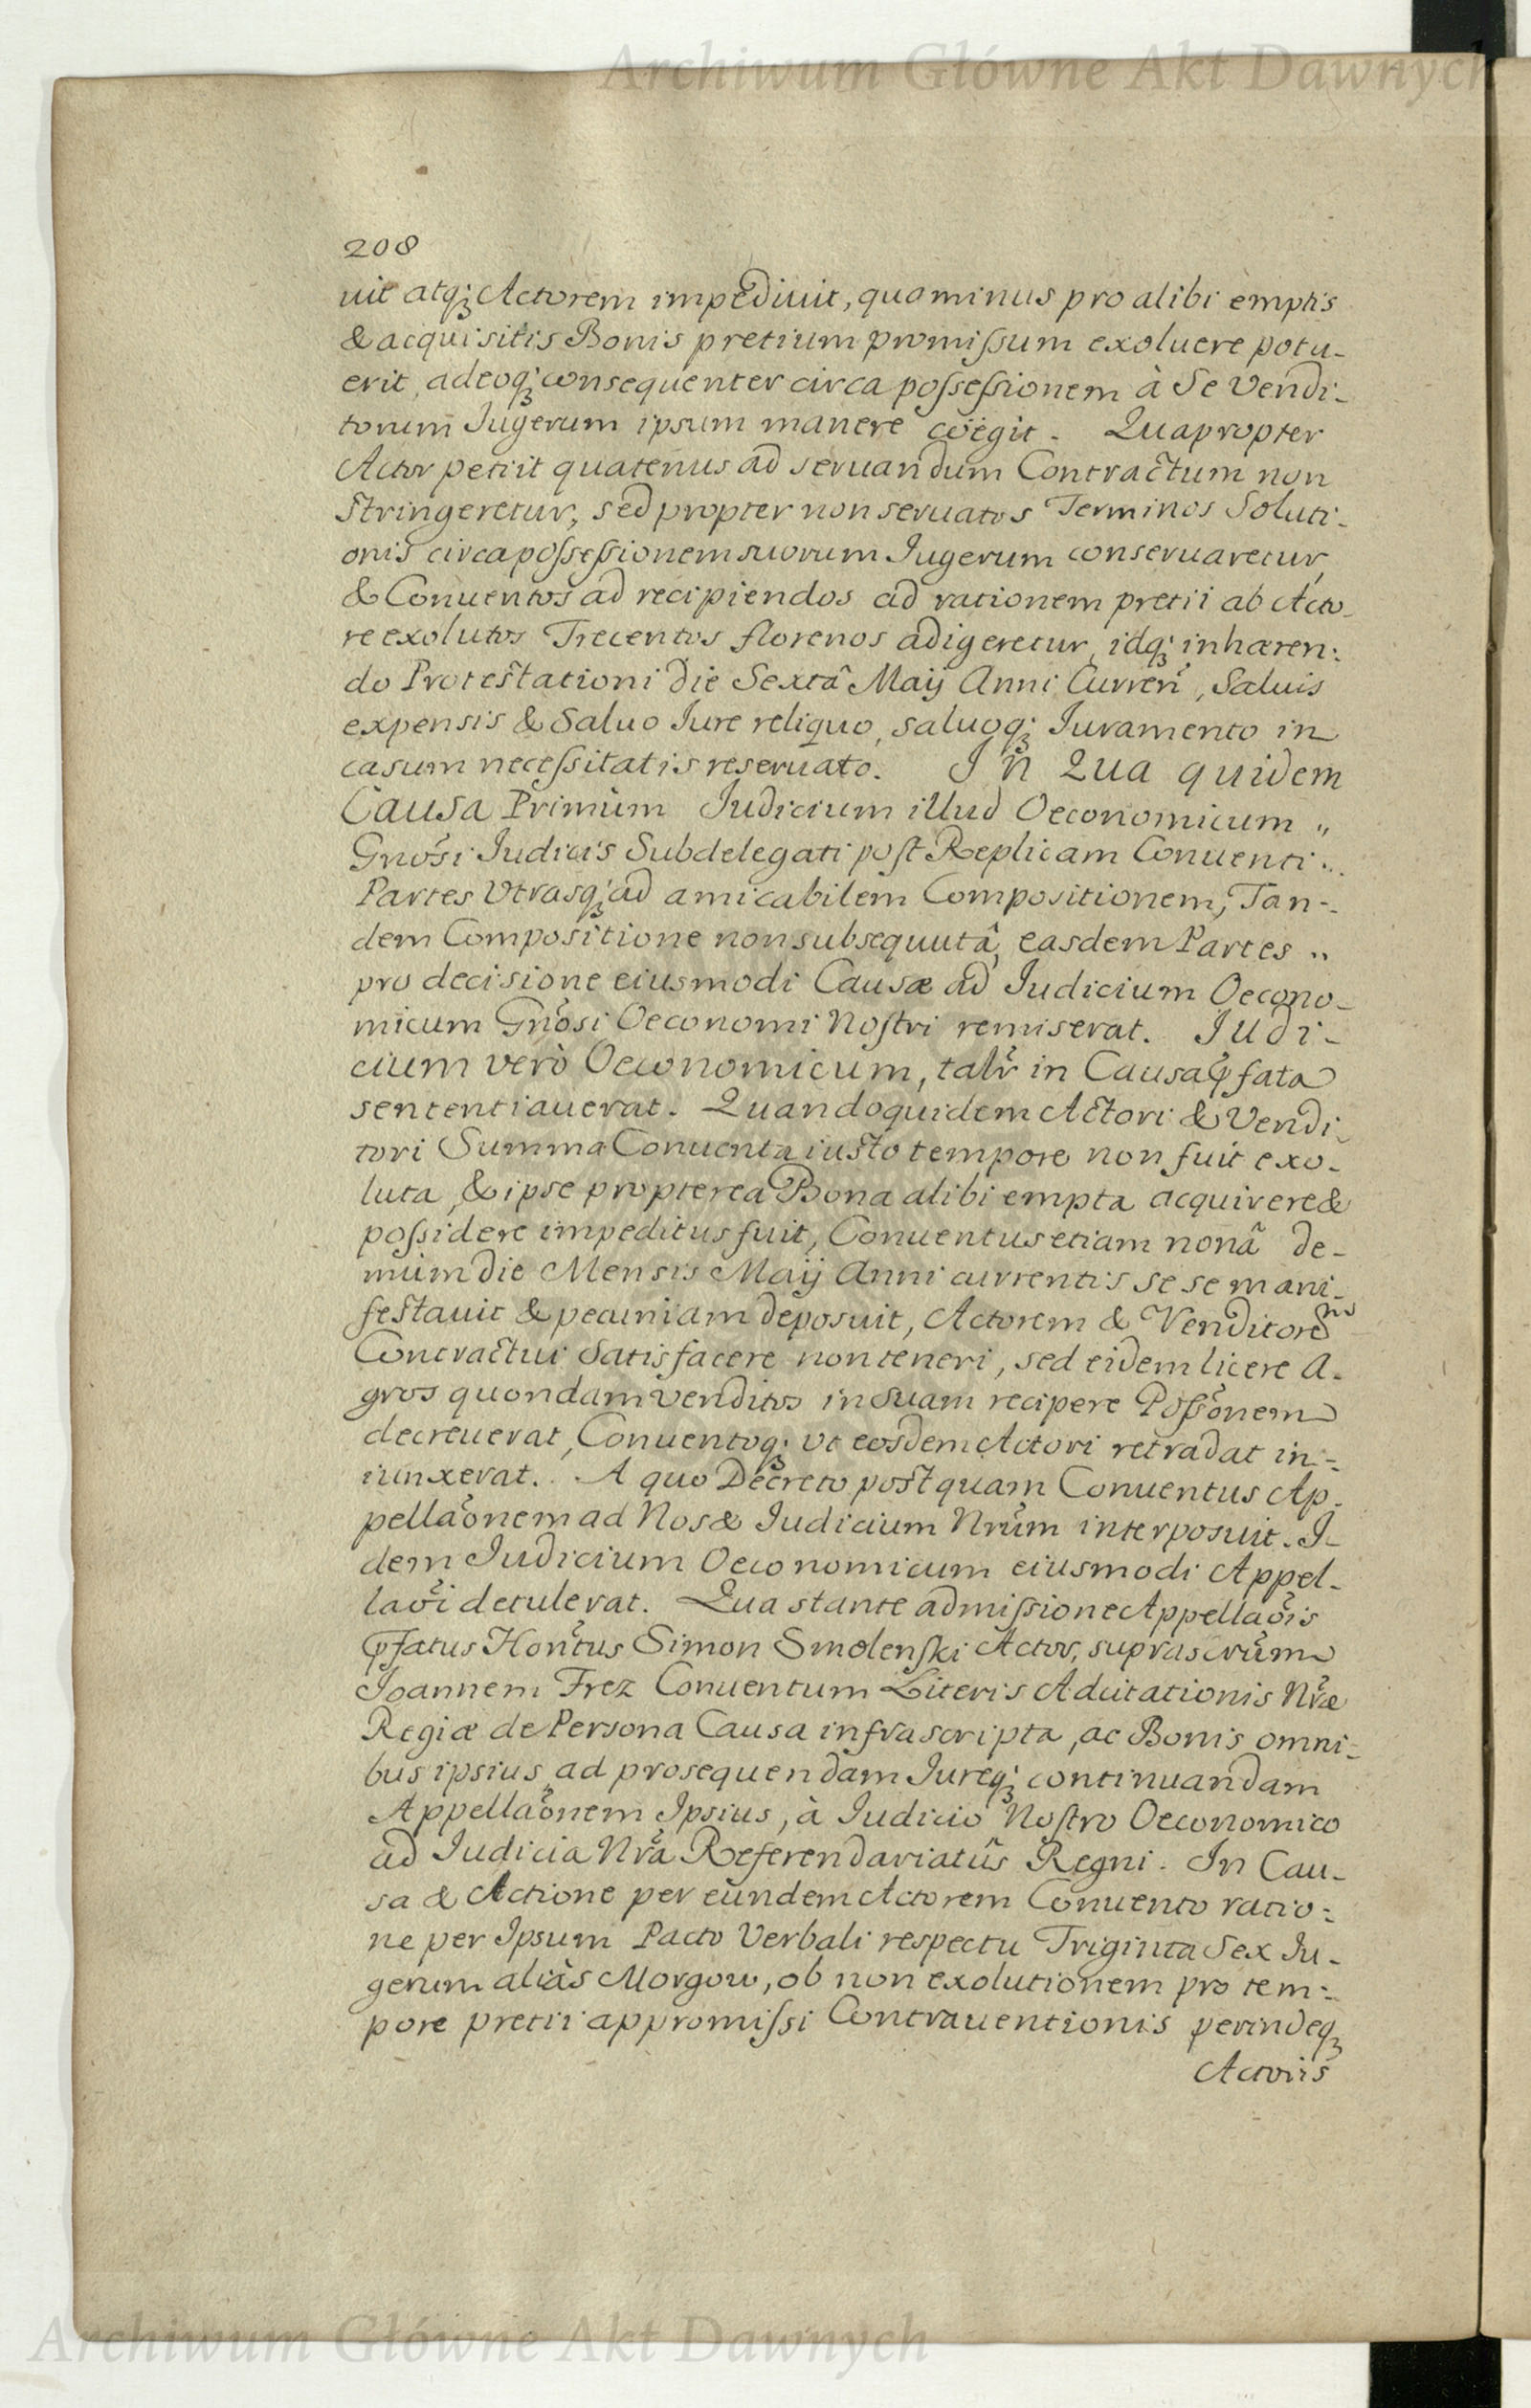 Archiwum Główne Akt Dawnych
208
uit atq; Actorem impediuit, quominus pro alibi emptis
& acquisitis Bonis pretium promiſsum exoluere potu-
erit, adeoq; consequenter circa poſseſsionem à Se Vendi-
torum Iugerum ipsum manere coëgit. Quapropter
Actor petiit quatenus ad seruandum Contractum non
stringeretur, sed propter non seruatos Terminos Soluti-
onis circa poſseſsionem suorum Iugerum conseruaretur,
& Conuentos ad recipiendos ad rationem pretii ab Acto-
re exolutos Trecentos florenos adigeretur, idq; inhæren:
do Protestationi die Sextâ Maij Anni Curren̄, Saluis
expensis & Saluo Iure reliquo, saluoq; Iuramento in
casum neceſsitatis reseruato. In Qua quidem
Causa Primùm Iudicium illud Oeconomicum „
Gnōsi Iudicis Subdelegati poſt Replicam Conuenti ..
Partes Vtrasq; ad amicabilem Compositionem, Tan-
dem Compositione non subsequutâ, easdem Partes „
pro decisione eiusmodi Causæ ad Iudicium Oecono-
micum Gnōsi Oeconomi Noſtri remiserat. Iudi-
cium verò Oeconomicum, talr̄ in Causa p̄fata
sententiauerat. Quandoquidem Actori & Vendi-
tori Summa Conuenta iusto tempore non fuit exo-
luta, & ipse propterea Bona alibi empta acquirere &
poſsidere impeditus fuit, Conuentus etiam nonâ de-
mùm die Mensis Maij Anni currentis sese mani-
festauit & pecuniam deposuit, Actorem & Venditorem
Contractui Satisfacere non teneri, sed eidem licere A-
gros quondam venditos in Suam recipere Poſsōnem
decreuerat, Conuentoq; vt eosdem Actori retradat in-
iunxerat. A quo Decreto postquam Conuentus Ap-
pellaōnem ad Nos & Iudicium Nrūm interposuit. I-
dem Iudicium Oeconomicum eiusmodi Appel-
laōi detulerat. Qua stante admiſsione Appellaōis
p̄fatus Honr̄tus Simon Smolenſki Actor, suprascrūm
Ioannem Frez Conuentum Literis Adcitationis Nrǣ
Regiæ de Persona Causa infrascripta, ac Bonis omni-
bus ipsius, ad prosequendam Iureq; continuandam
Appellaōnem Ipsius, à Iudicio Noſtro Oeconomico
ad Iudicia Nrā Referendariatûs Regni. In Cau-
sa & Actione per eundem Actorem Conuento ratio:
ne per Ipsum Pacto Verbali respectu Triginta Sex Iu-
gerum aliàs Morgow, ob non exolutionem pro tem:
pore pretii appromiſsi Contrauentionis perindeq;
Actoris
Archiwum Główne Akt Dawnych